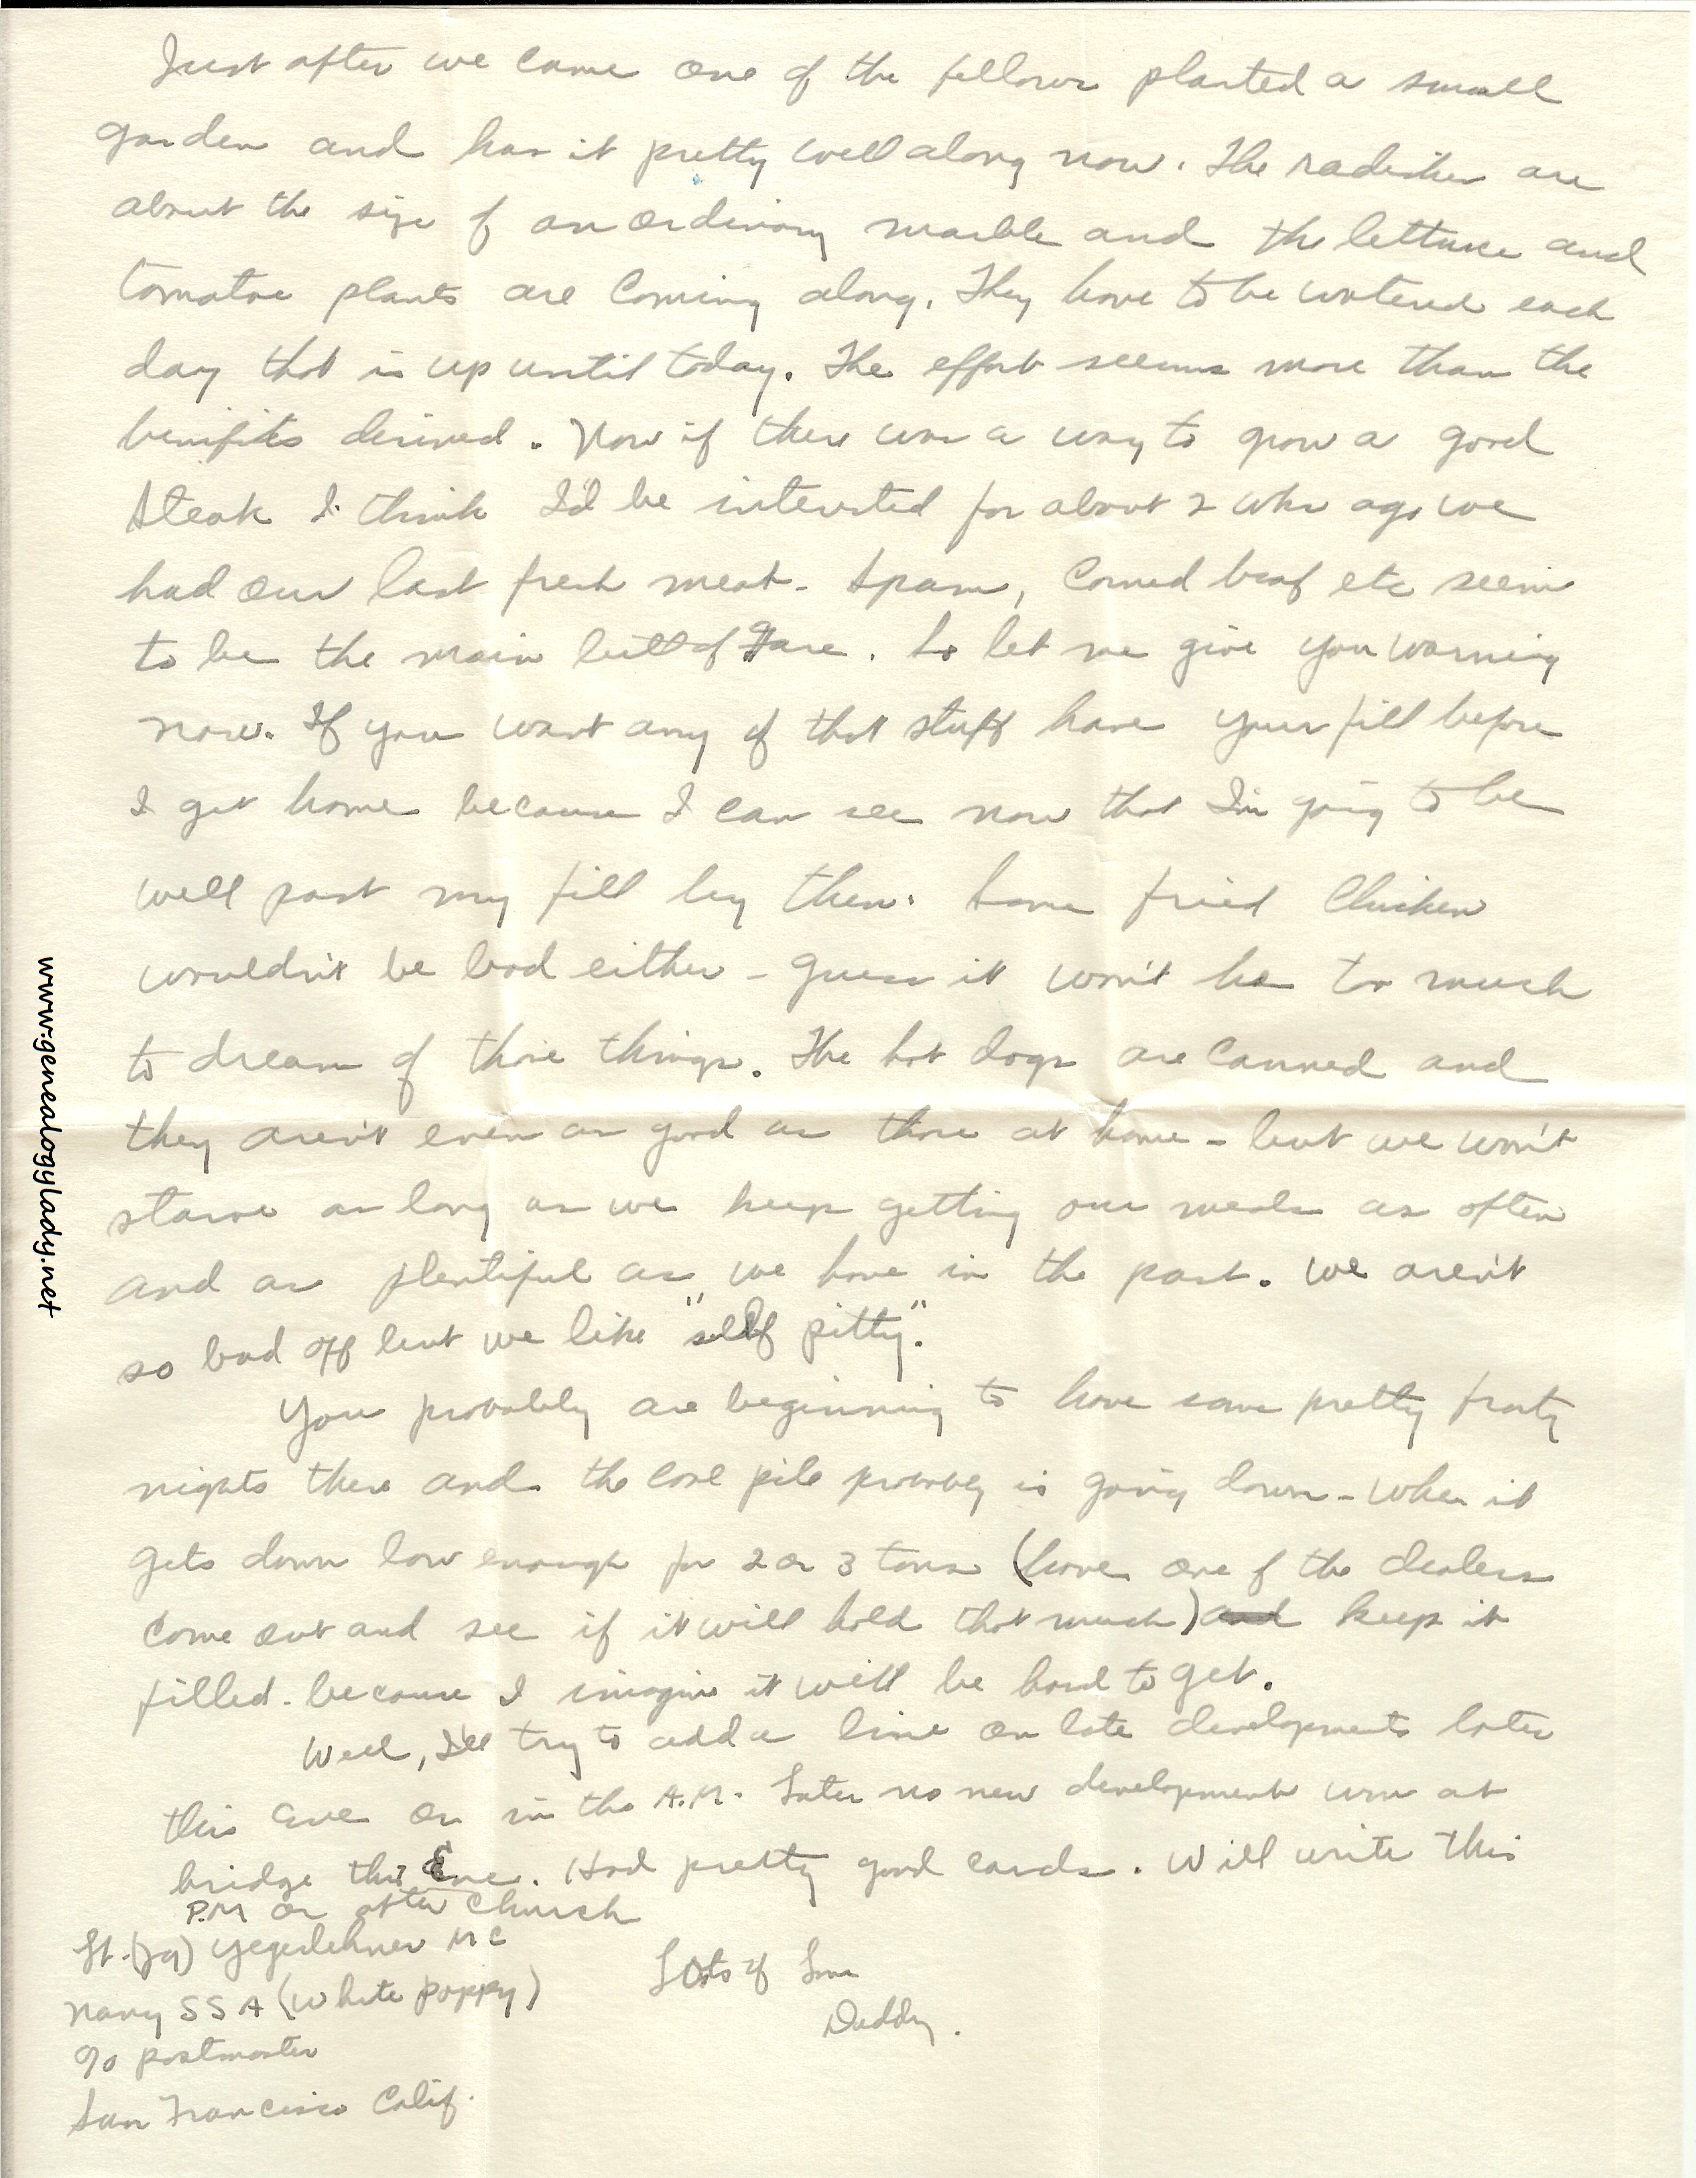 Just after we came one of the fellows planted a small
garden and has it pretty well along now. The radishes are
about the size of an ordinary marble and the lettuce and
tomatoe plants are coming along. They have to be watered each
day that is up until today. The effort seems more than the
benifits derived. Now if there was a way to grow a good
steak I think I'd be interested for about 2 wks ago we
had our last fresh meat - Spam, corned beef etc seem
to be the main bill of fare. So let me give you warning
now. If you want any of that stuff have your fill before
I get home because I can see now that I'm going to be
well past my fill by then. Some fried chicken
wouldn't be bad either - guess it won't be to much
to dream of those things. The hot dogs are canned and
they aren't even as good as those at home - but we won't
starve as long as we keep getting our meals as often
and as plentiful as we have in the past. We aren't
so bad off but we like "self pitty".
You probably are beginning to have some pretty frosty
nights there and the coal pile probably is going down - when it
gets down low enough for 2 or 3 tons (have one of the dealers
come out and see if it will hold that much) and keep it
filled - because I imagine it will be hard to get.
Well, I'll try to add a line on late developments later
this eve or in the A.M. Later no new developments was at
bridge this Eve. Had pretty good cards. Will write this
P.M or after church
Lots of Love
Daddy.
Lt. (jg) Yegerlehner MC
Navy SSA (White Poppy)
c/o postmaster
San Francisco Calif.
www.genealogylady.net